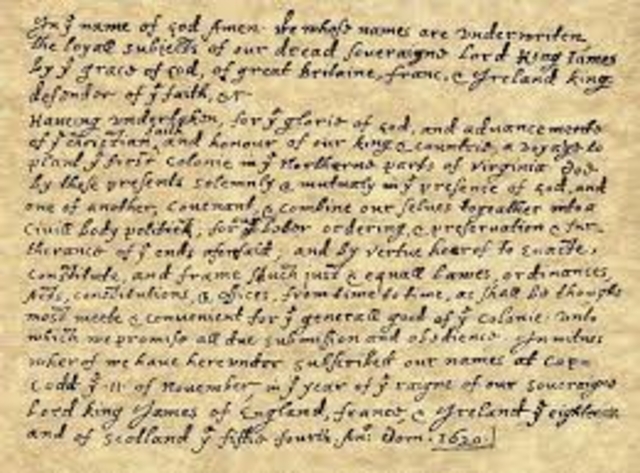 In ẏ name of god Amen· We whose names are underwriten,
the loyall subjects of our dread soveraigne Lord King James
by ẏ grace of God, of great Britaine, franc, & Ireland king,
defendor of ẏ faith, &c
Haveing undertaken, for ẏ glorie of God, and advancemente
of ẏ christian faith and honour of our king & countrie, a voyage to
plant ẏ first colonie in ẏ Northerne parts of Virginia· doe
by these presents solemnly & mutualy in ẏ presence of God, and
one of another, covenant, & combine our selves togeather into a
civill body politick; for our better ordering, & preservation & fur-
therance of ẏ ends aforesaid; and by vertue hearof to enacte,
constitute, and frame shuch just & equall Lawes, ordinances,
Acts, constitutions, & offices, from time to time, as shall be thought
most meete & convenient for ẏ generall good of ẏ colonie: unto
which we promise all due submission and obedience. In witnes
wherof we have hereunder subscribed our names at Cape
Codd ẏ ·11· of November, in ẏ year of ẏ raigne of our soveraigne
Lord king James of England, france, & Ireland ẏ eighteenth
and of Scotland ẏ fiftie fourth. An: Dom· 1620·